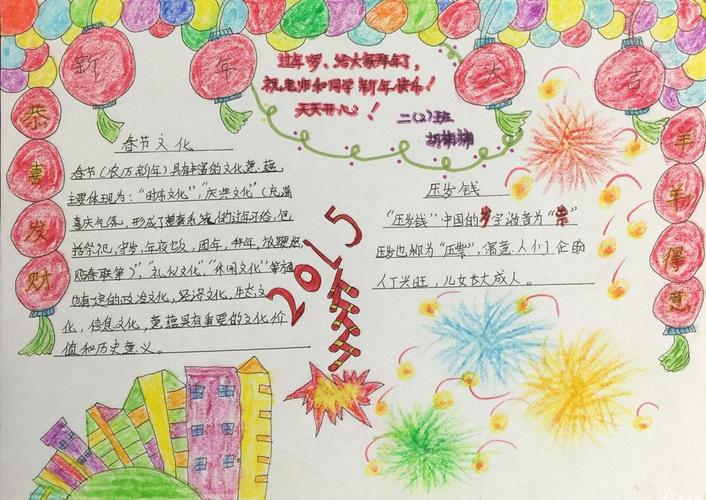 新年大吉
过年啰、给大家拜年了,
祝老师和同学新年快乐!
天天开心!
二(2)班
恭喜发财
春节文化
春节(农历新年)具有丰富的文化意蕴,
主要体现为:“时序文化”,“庆典文化”(充满
喜庆气氛,形成了
的过年习俗,包
括祭祀,守岁,年夜饭,团年,拜年,放鞭炮
贴春联等)”,“礼仪文化”,“休闲文化”等方面
也有一定的政治文化,经济文化,生态文
化,信息文化,意蕴具有重要的文化价
值和历史意义。
2015
压岁钱
“压岁钱”中国的岁字谐音为“祟”
压岁也都为“压祟”,寓意人们企盼
人丁兴旺,儿女长大成人。
羊羊得意